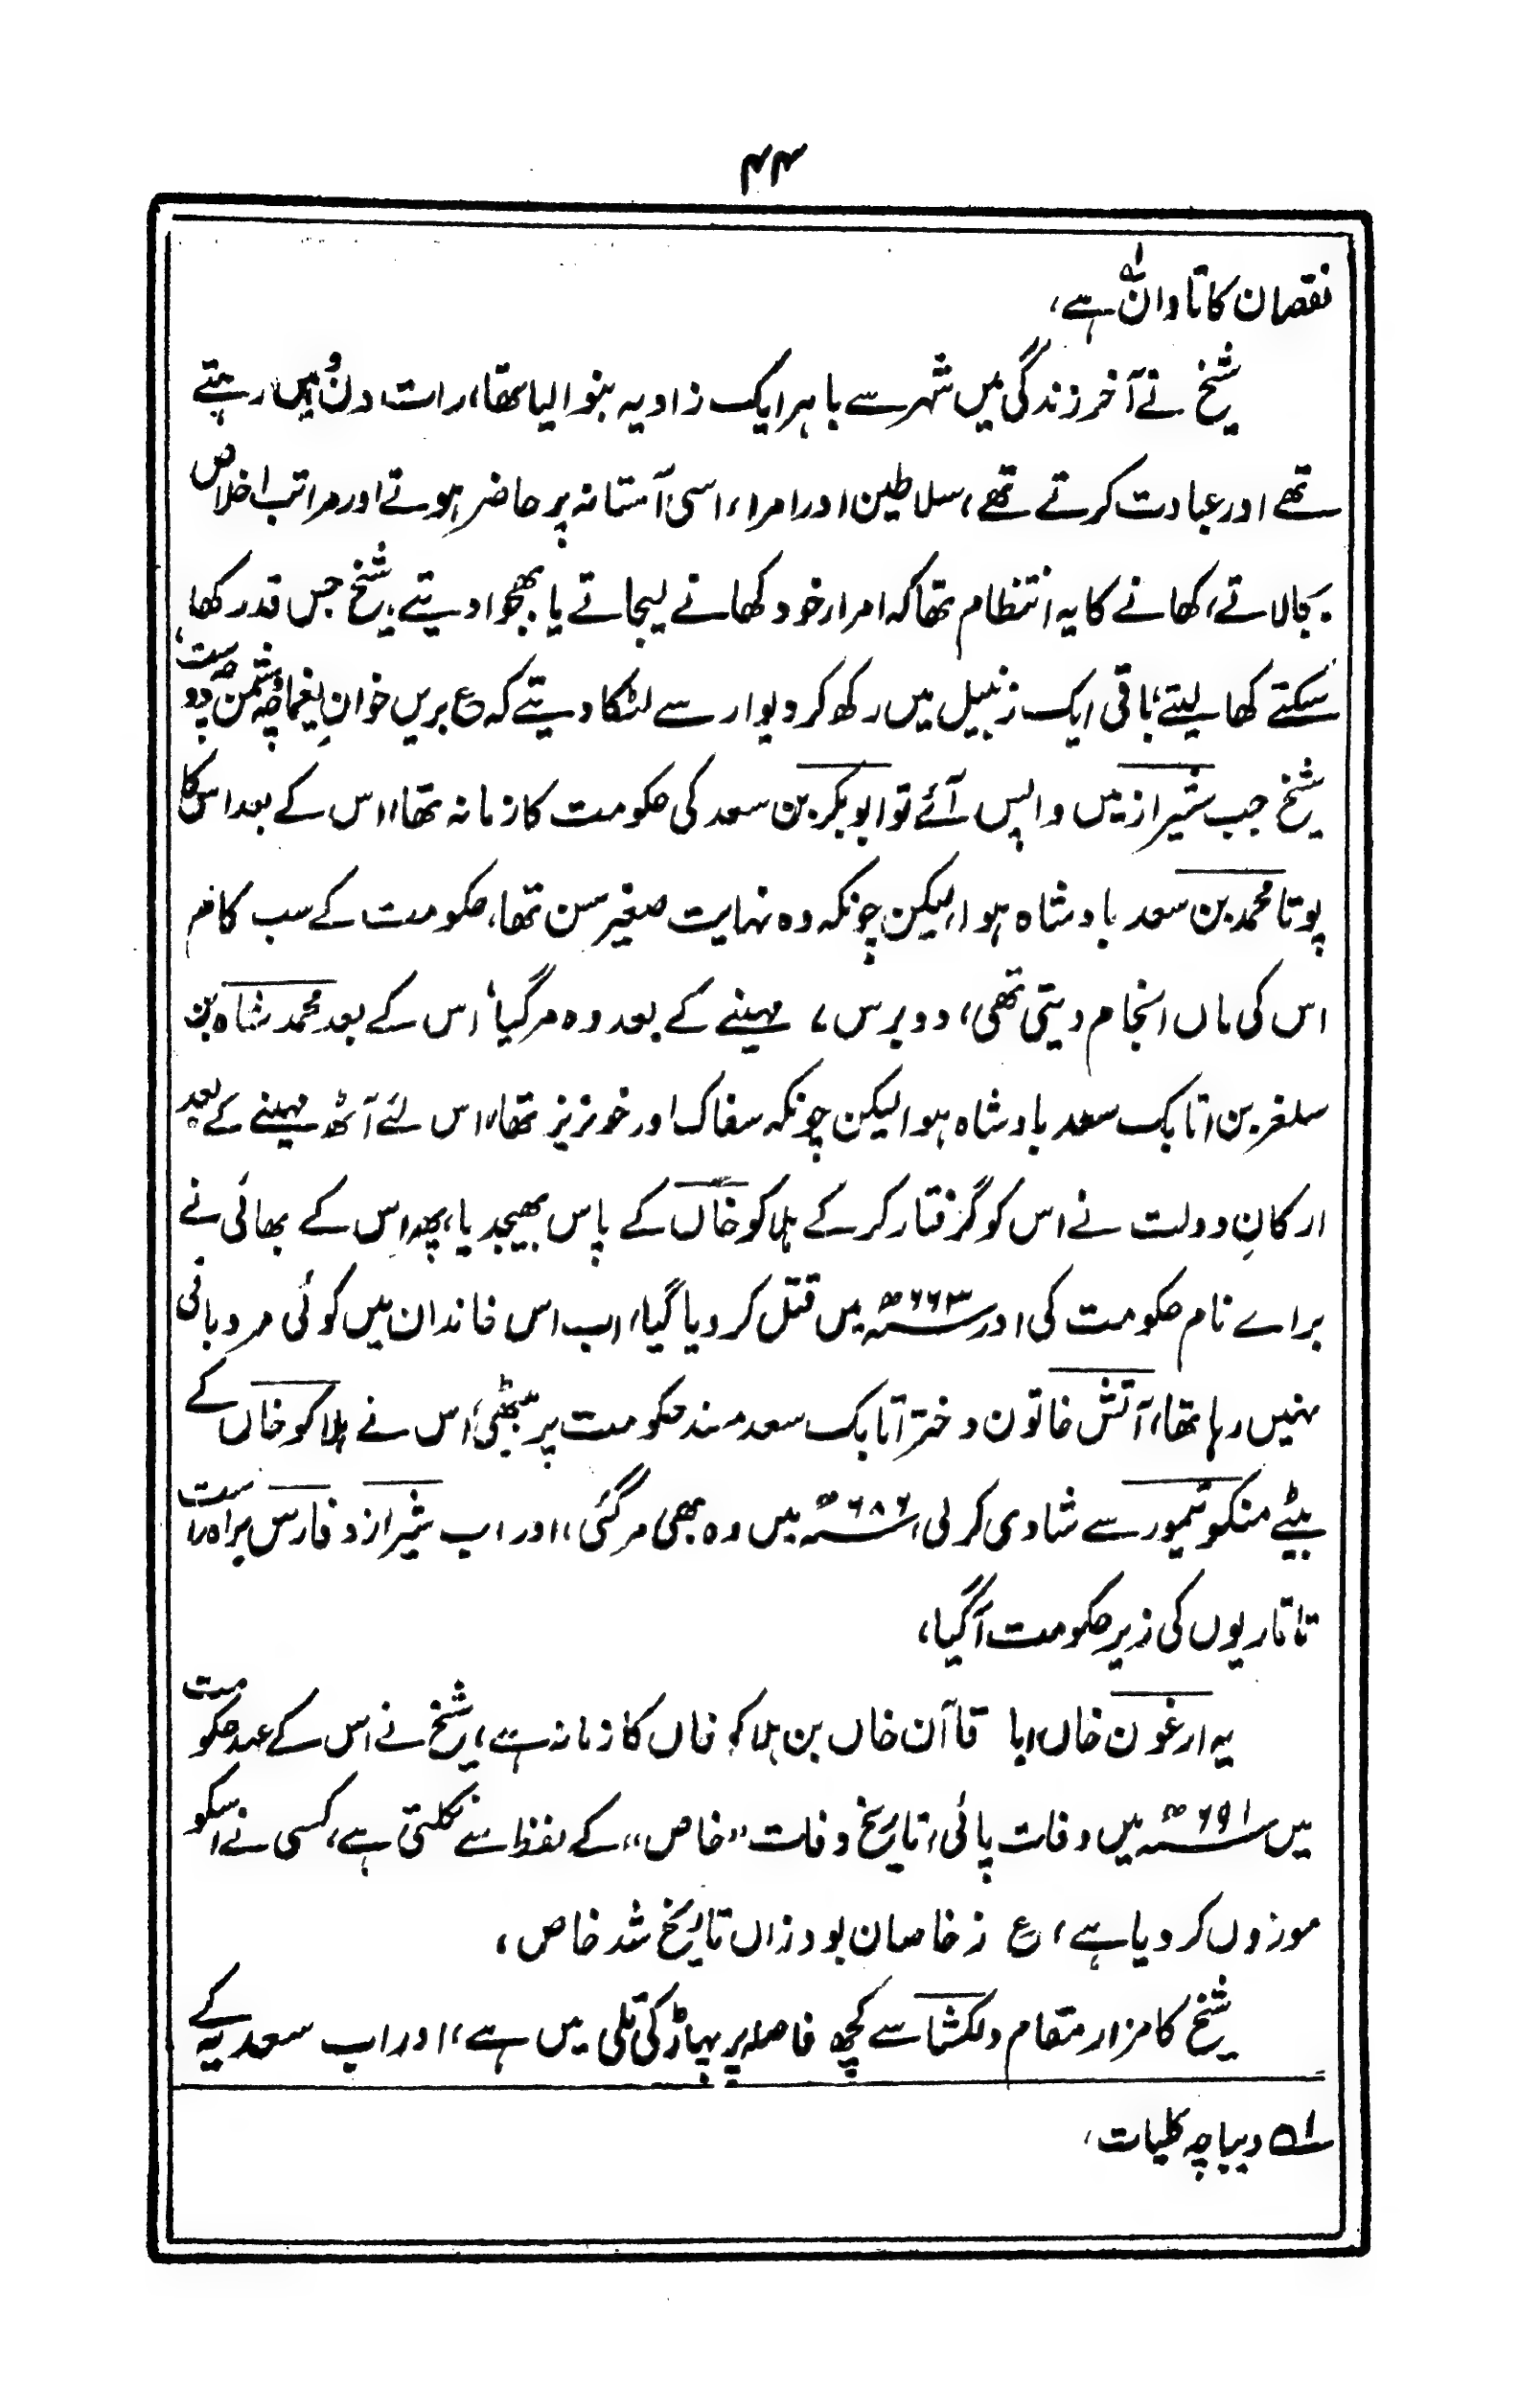 ۴۴
نقصان کا تاوان ہے،
شیخ نے آخر زندگی میں شہر سے باہر ایک زاویہ بنوا لیا تھا، رات دن وہیں رہتے
تھے اور عبادت کرتے تھے، سلاطین اور امراء، اسی آستانہ پر حاضر ہوتے اور مراتب اخلاص
بجالاتے، کھانے کا یہ انتظام تھا کہ امرار خود کھانے لیجاتے یا بھجوا دیتے، شیخ جس قدر کھا
سکتے کھا لیتے، باقی ایک زنبیل میں رکھ کر دیوار سے لٹکا دیتے کہ ع بریں خوانِ یغما چہ دشمن چہ دوست،
شیخ جب شیراز میں واپس آئے تو ابوبکر بن سعد کی حکومت کا زمانہ تھا، اس کے بعد اس کا
پوتا محمد بن سعد بادشاہ ہوا، لیکن چونکہ وہ نہایت صغیر سن تھا، حکومت کے سب کام
اس کی ماں انجام دیتی تھی، دو برس ۷ مہینے کے بعد وہ مر گیا، اس کے بعد محمد شاہ بن
سلغر بن اتابک سعد بادشاہ ہوا لیکن چونکہ سفاک اور خونریز تھا، اس لئے آٹھ مہینے کے بعد
ارکانِ دولت نے اس کو گرفتار کر کے ہلاکو خاں کے پاس بھیجدیا، پھر اس کے بھائی نے
براے نام حکومت کی اور ۶۶۳ھ میں قتل کر دیا گیا، اب اس خاندان میں کوئی مرد باقی
نہیں رہا تھا، آتش خاتون دختر آتابک سعد مسند حکومت پر بیٹھی، اس نے ہلاکو خاں کے
بیٹے منکو تیمور سے شادی کر لی، ۶۸۶ھ میں وہ بھی مر گئی، اور اب شیراز و فارس براہ راست
تاتاریوں کی زیر حکومت آگیا،
یہ ارغون خاں ابا قاآن خاں بن ہلاکو خاں کا زمانہ ہے، شیخ نے اس کے عہد حکومت
میں ۶۹۱ھ میں وفات پائی، تاریخ وفات "خاص" کے لفظ سے نکلتی ہے، کسی نے اسکو
موزوں کر دیا ہے، ع ز خاصان بود زاں تاریخ شد خاص،
شیخ کا مزار مقام دلکشا سے کچھ فاصلہ پر پہاڑ کی تلی میں ہے، اور اب سعدیہ کے
۱ھ دیباچہ کلیات،